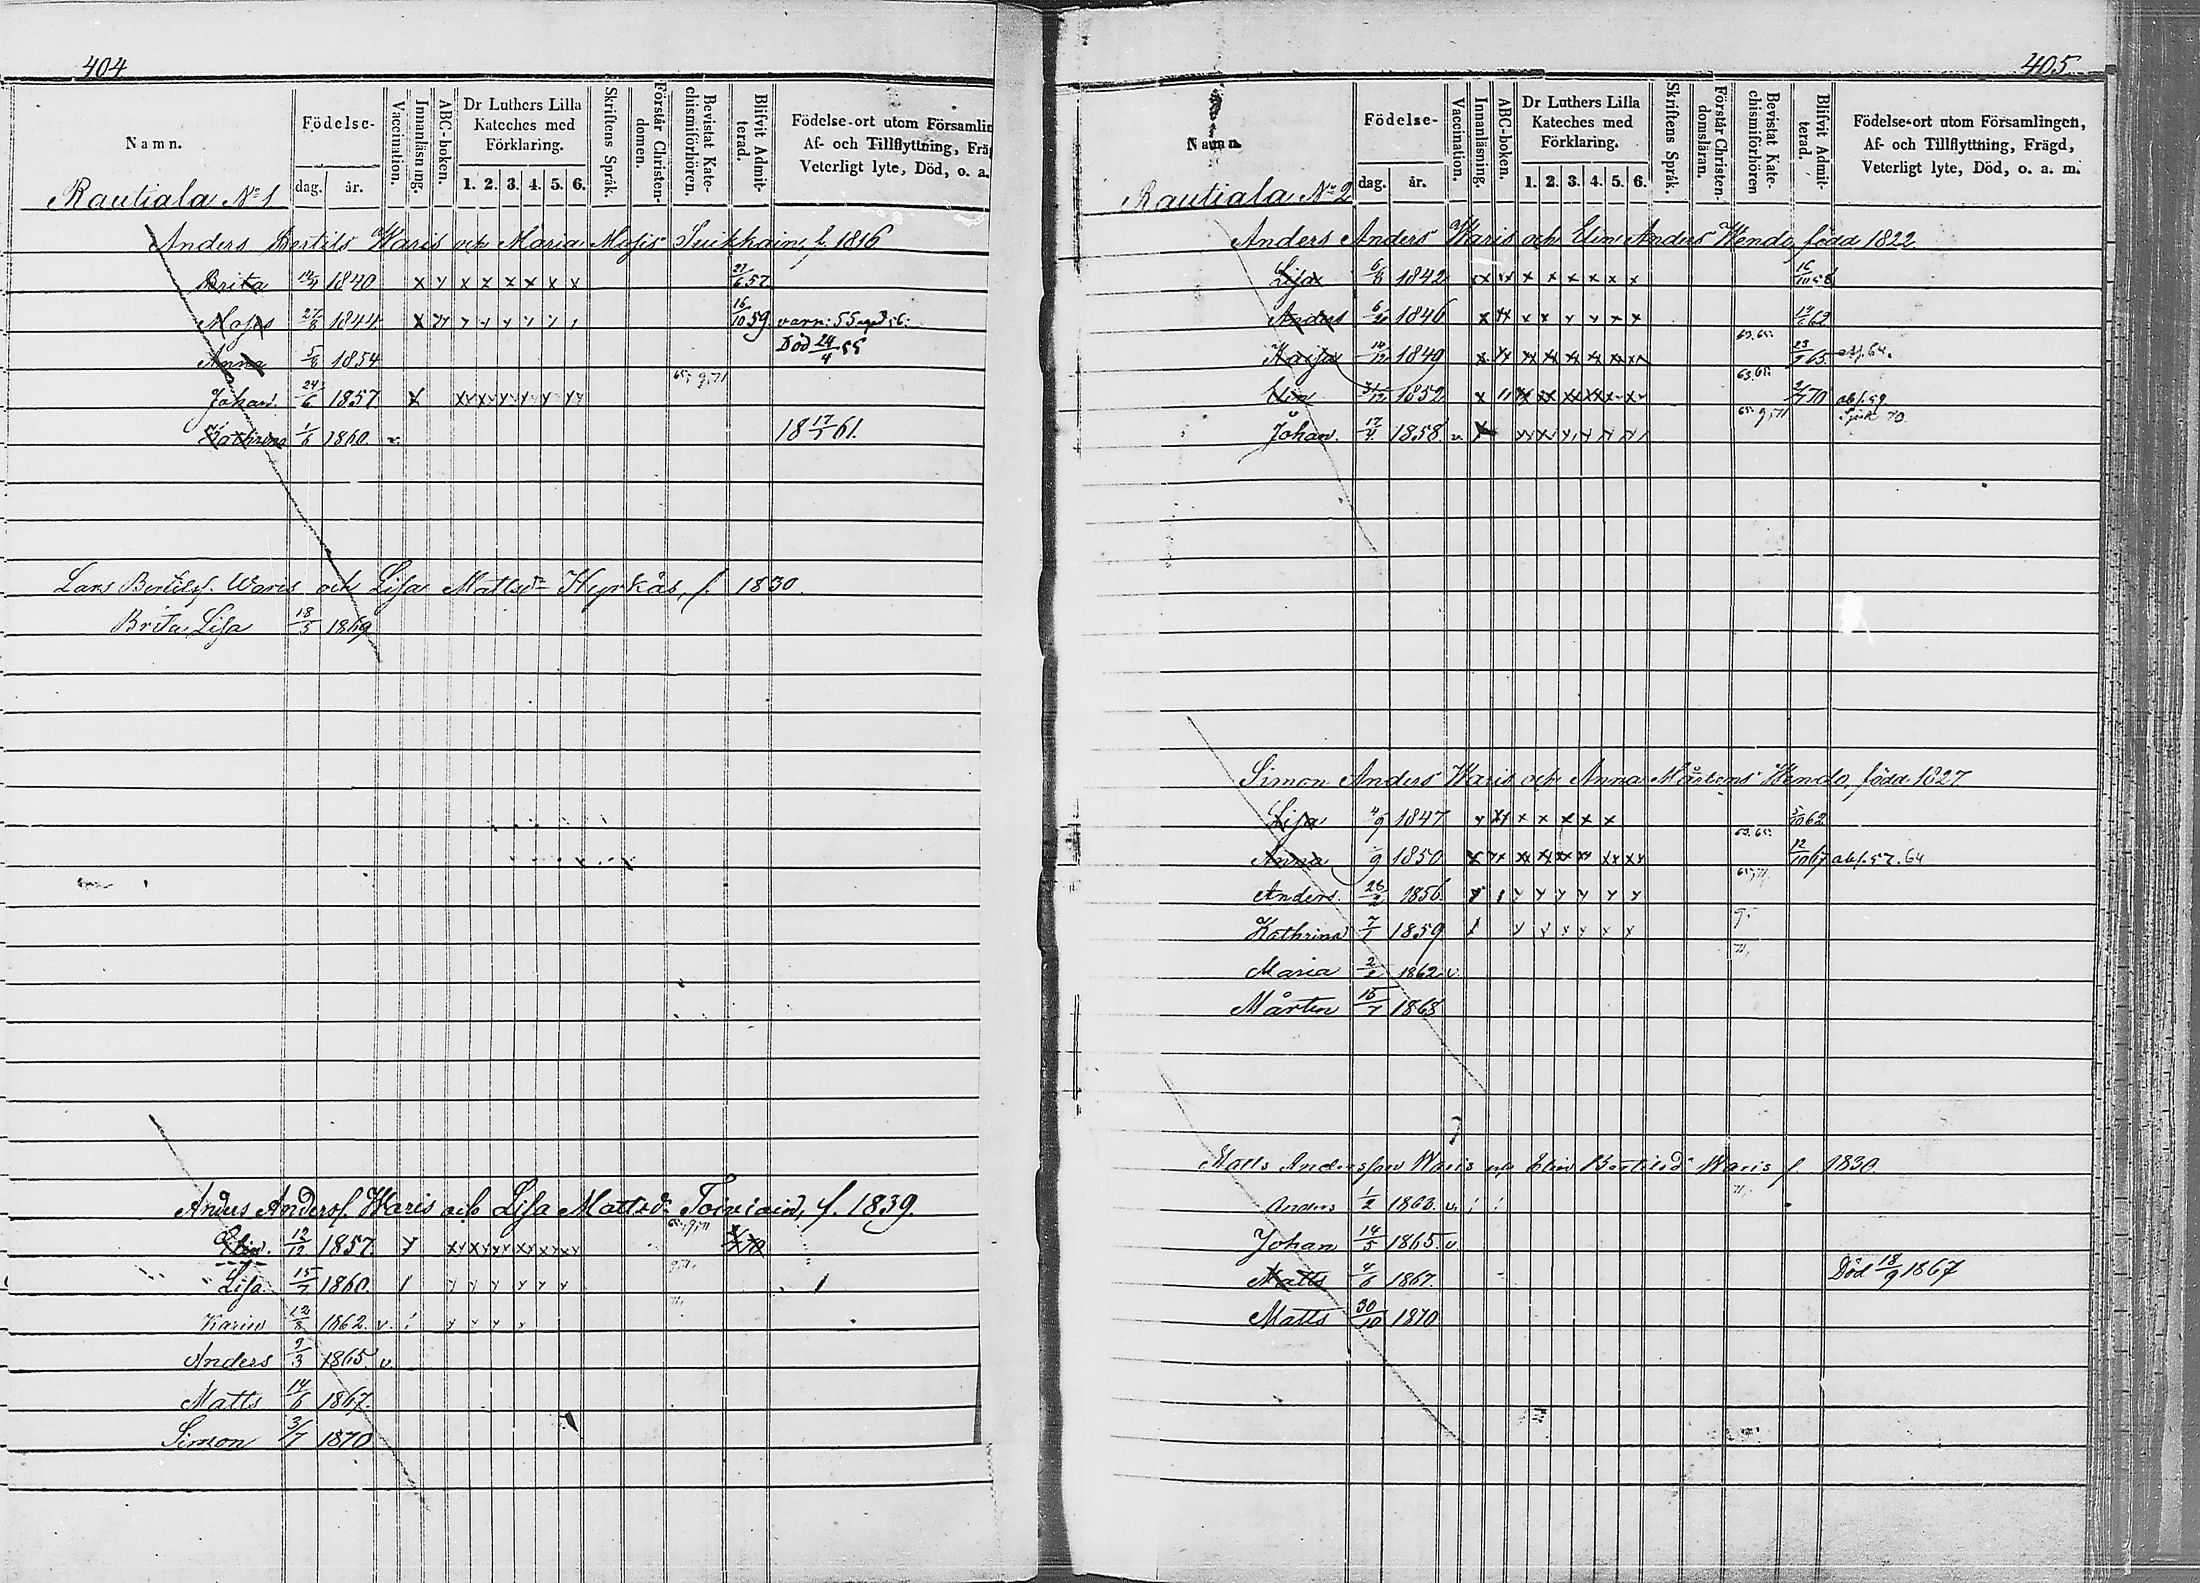 404
Namn.
Födelse-
dag. år.
Vaccination.
Innanläsning.
ABC-boken.
Dr Luthers Lilla
Kateches med
Förklaring.
1. 2. 3. 4. 5. 6.
Skriftens Språk.
Förstår Christen-
domen.
Bevistat Kate-
chismiförhören.
Blifvit Admit-
terad.
Födelse-ort utom Församlin
Af- och Tillflyttning, Fräg
Veterligt lyte, Död, o. a.
Rautiala No 1
Anders Bertils Waris och Maria Mosis Suikkain, f. 1816
Brita 1840 57
Moses 27/8 1844 16/10 59
Anna 5/8 1854 Död 24/4 55
Johan. 24/6 1857
Kathrina 1/6 1860 18 17/7 61.
Lars Bertilsf. Waris och Lisa Mattsdr Hyrkäs, f. 1830.
Brita Lisa 18/5 1869
Anders Andersf. Waris och Lisa Mattsdr Toiviain, f. 1839.
Elin. 12/12 1857
Lisa. 15/7 1860.
Karin 12/8 1862. v.
Anders 9/3 1865. v
Matts 14/6 1867.
Simon 3/7 1870
405
Namn.
Födelse-
dag. år.
Vaccination.
Innanläsning.
ABC-boken.
Dr Luthers Lilla
Kateches med
Förklaring.
1. 2. 3. 4. 5. 6.
Skriftens Språk.
Förstår Christen-
domsläran.
Bevistat Kate-
chismiförhören
Blifvit Admit-
terad.
Födelse-ort utom Församlingen,
Af- och Tillflyttning, Frägd,
Veterligt lyte, Död, o. a. m.
Rautiala No 2
Anders Anders Waris och Elin Anders Hendo, född 1822
Lisa 6/8 1842 16/10 58
Anders 1846 62
Kaisa 14/12 1849 65 abs. 64.
Elin 1852 70 abs. 59
Sjuk 70.
Johan. 17/4 1858. v
Simon Anders Waris och Anna Mårtens Hendo, född 1827
Lisa 4/9 1847 5/10 62
Anna 9 1850 12/10 67 abs. 57. 64
Anders. 26/2 1856
Kathrina 7/7 1859
Maria 1862 v.
Mårten 15/7 1868
Matts Andersson Waris och Elin Bertilsdr Waris f. 1830
Anders 1/2 1863. v
Johan 14/5 1865. v
Matts 4/6 1867. Död 18/9 1867
Matts 30/10 1870